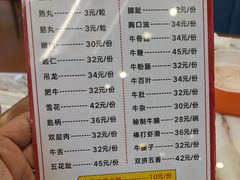 熟丸 3元/粒
筋丸 3元/粒
嫩肉 30元/份
匙仁 32元/份
吊龙 34元/份
肥牛 32元/份
雪花 42元/份
匙柄 36元/份
双层肉 32元/份
牛舌 32元/份
五花趾 45元/份
脚趾 32元/份
胸口油 34元/份
牛骨髓 34元/份
牛鞭 45元/份
牛粉肠 32元/份
牛百叶 32元/份
牛肚 32元/份
牛杂 30元/份
秘制牛腩 28元/份
棒打虾滑 36元/份
牛腰子 32元/份
双拼五香 42元/份
10元/份